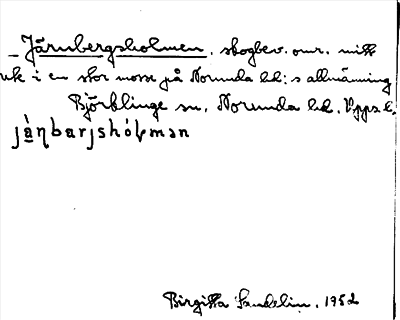 Järnbergsholmen, skogbev. omr. mitt
uk i en stor mosse på Norunda hd:s allmänning
Björklinge sn, Norunda hd, Upps. l.
jὰṇbarjshólman
Birgitta Sandelin. 1952